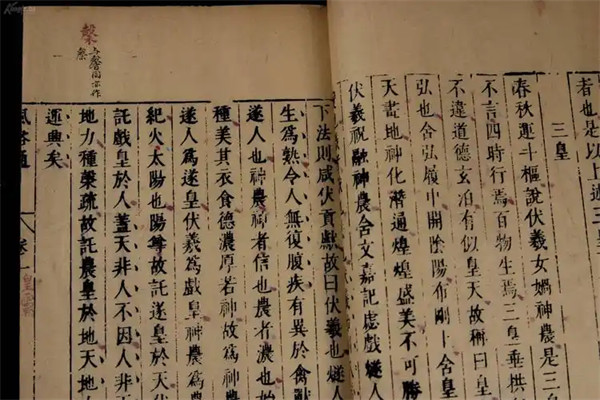 者也是以上述三皇
三皇
春秋運斗樞說伏羲女媧神農是三
不言四時行焉百物生焉三皇垂拱
不違道德玄泊有似皇天故稱曰皇
弘也含弘履中開陰陽布剛上含皇
天畫地神化潛通煌煌盛美不可勝
伏羲祝融神農含文嘉記虙戲燧人
下法則咸伏貢獻故曰伏羲也燧人
生為熟令人無復腹疾有異於禽獸
遂人也神農神者信也農者濃也始
種美其衣食德濃厚若神故為神
遂人為遂皇伏羲為戲皇神農為農
紀火太陽也陽尊故託遂皇於天
託戲皇於人蓋天非人不因人非
地力種糓疏故託農皇於地天地
運興矣
風俗通 卷一